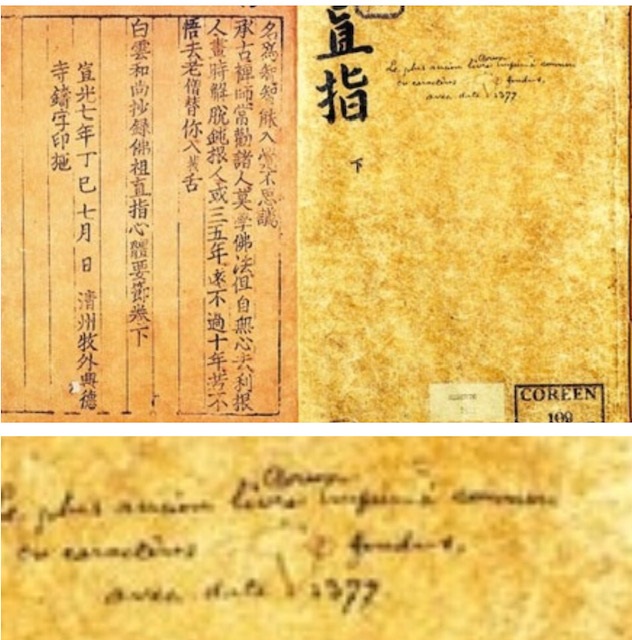 名爲智入不思議
承古禪師常勸諸人莫學佛法但自無心去利根
人晝時解脫鈍根人或三五年遠不過十年若不
悟去老僧替你入舌
白雲和尚抄錄佛祖直指心體要節卷下
宣光七年丁巳七月 日 淸州牧外興德
寺鑄字印施
直指
下
Le plus ancien livre Coréen imprimé connu
en caractères fondus,
avec date 1377
COREEN
109
Le plus ancien livre Coréen imprimé connu
en caractères fondus,
avec date 1377